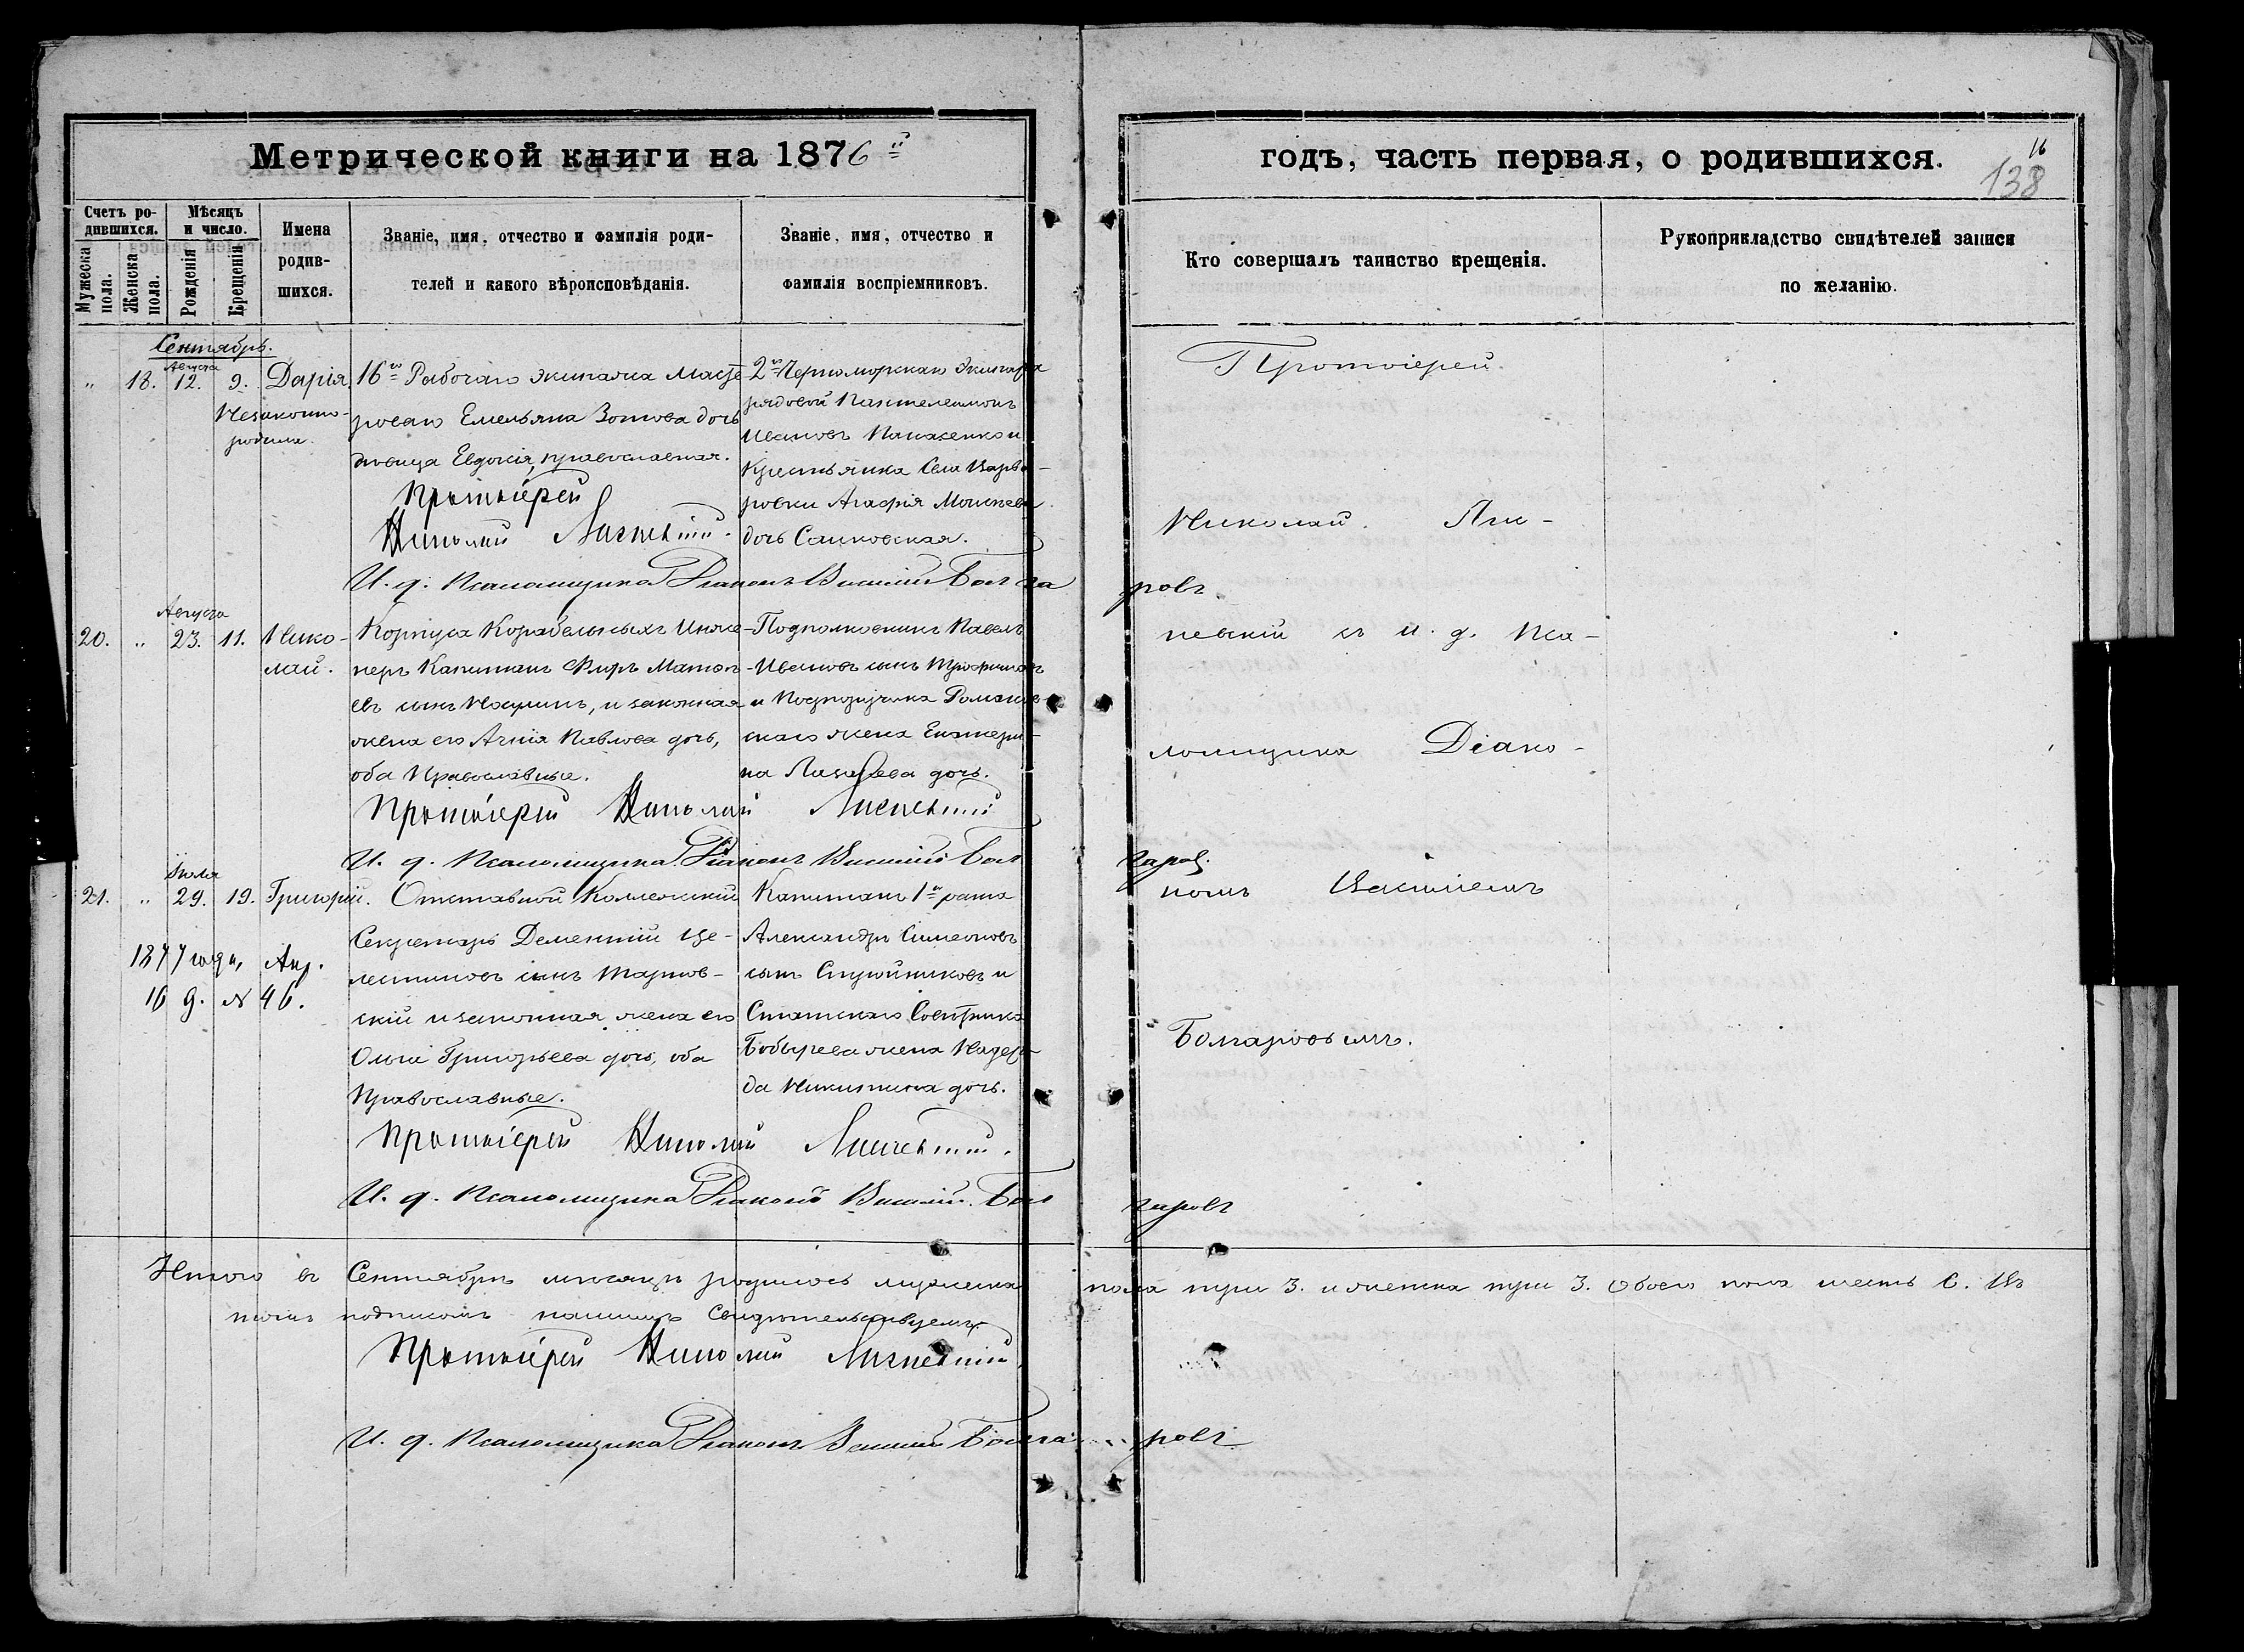 Метрической книги на 1876й
годъ, часть первая, о родившихся.
16
138
Счетъ ро-
дившихся.
Мужеска
пола.
Женска
пола.
Мѣсяцъ
и число.
Рожденія
Крещенія
Имена
родив-
шихся.
Званіе, имя, отчество и фамилія роди-
телей и какого вѣроисповѣданія.
Званіе, имя, отчество и
фамилія воспріемниковъ.
Кто совершалъ таинство крещенія.
Рукоприкладство свидѣтелей записи
по желанію.
Сентябрь.
Августа
" 18. 12. 9. Дарія
Незаконно-
рождена.
16го Рабочаго экипажа Масте-
роваго Емельяна Зотова дочь
дѣвица Евдокія, православная.
Протоіерей
Николай
И. д. Псаломщика Діаконъ Василій Болгаровъ
2го Черноморскаго Экипажа
рядовой Пантелеимонъ
Ивановъ Панасенко и
Крестьянка Села Варва-
ровки Агафія Моисеева
дочь Саиковская.
Августа
20. " 23. 11. Нико-
лай.
Корпуса Корабельныхъ Инже-
неръ Капитанъ Фиръ Матвѣ-
евъ сынъ, и законная
жена его Анна Павлова дочь,
оба Православные.
Подполковникъ Павелъ
Ивановъ сынъ Трофимовъ
и Подпоручика Романов-
скаго жена Екатери-
на дочь.
Протоіерей Николай
И. д. Псаломщика Діаконъ Василій Болгаровъ
Іюля
21. " 29. 19. Григорій.
1877 года, Апр.
16 д. № 46.
Отставной Коллежскій
Секретарь Дементій Це-
лестиновъ сынъ Тарнов-
скій и законная жена его
Ольга Григорьева дочь, оба
Православные.
Капитанъ 1го ранга
Александръ Симеоновъ
сынъ Струйниковъ и
Статскаго Совѣтника
Бобырева жена Надеж-
да Никитина дочь.
Протоіерей Николай
И. д. Псаломщика Діаконъ Василій Болгаровъ
Протоіерей
Николай
съ и. д. Пса-
ломщика Діако-
номъ Василіемъ
Болгаровымъ.
Итого въ Сентябрѣ мѣсяцѣ родилось мужеска пола три 3. и женска три 3. Обоего пола шесть 6. Въ
томъ подписомъ нашимъ свидѣтельствуемъ:
Протоіерей Николай
И. д. Псаломщика Діаконъ Василій Болгаровъ